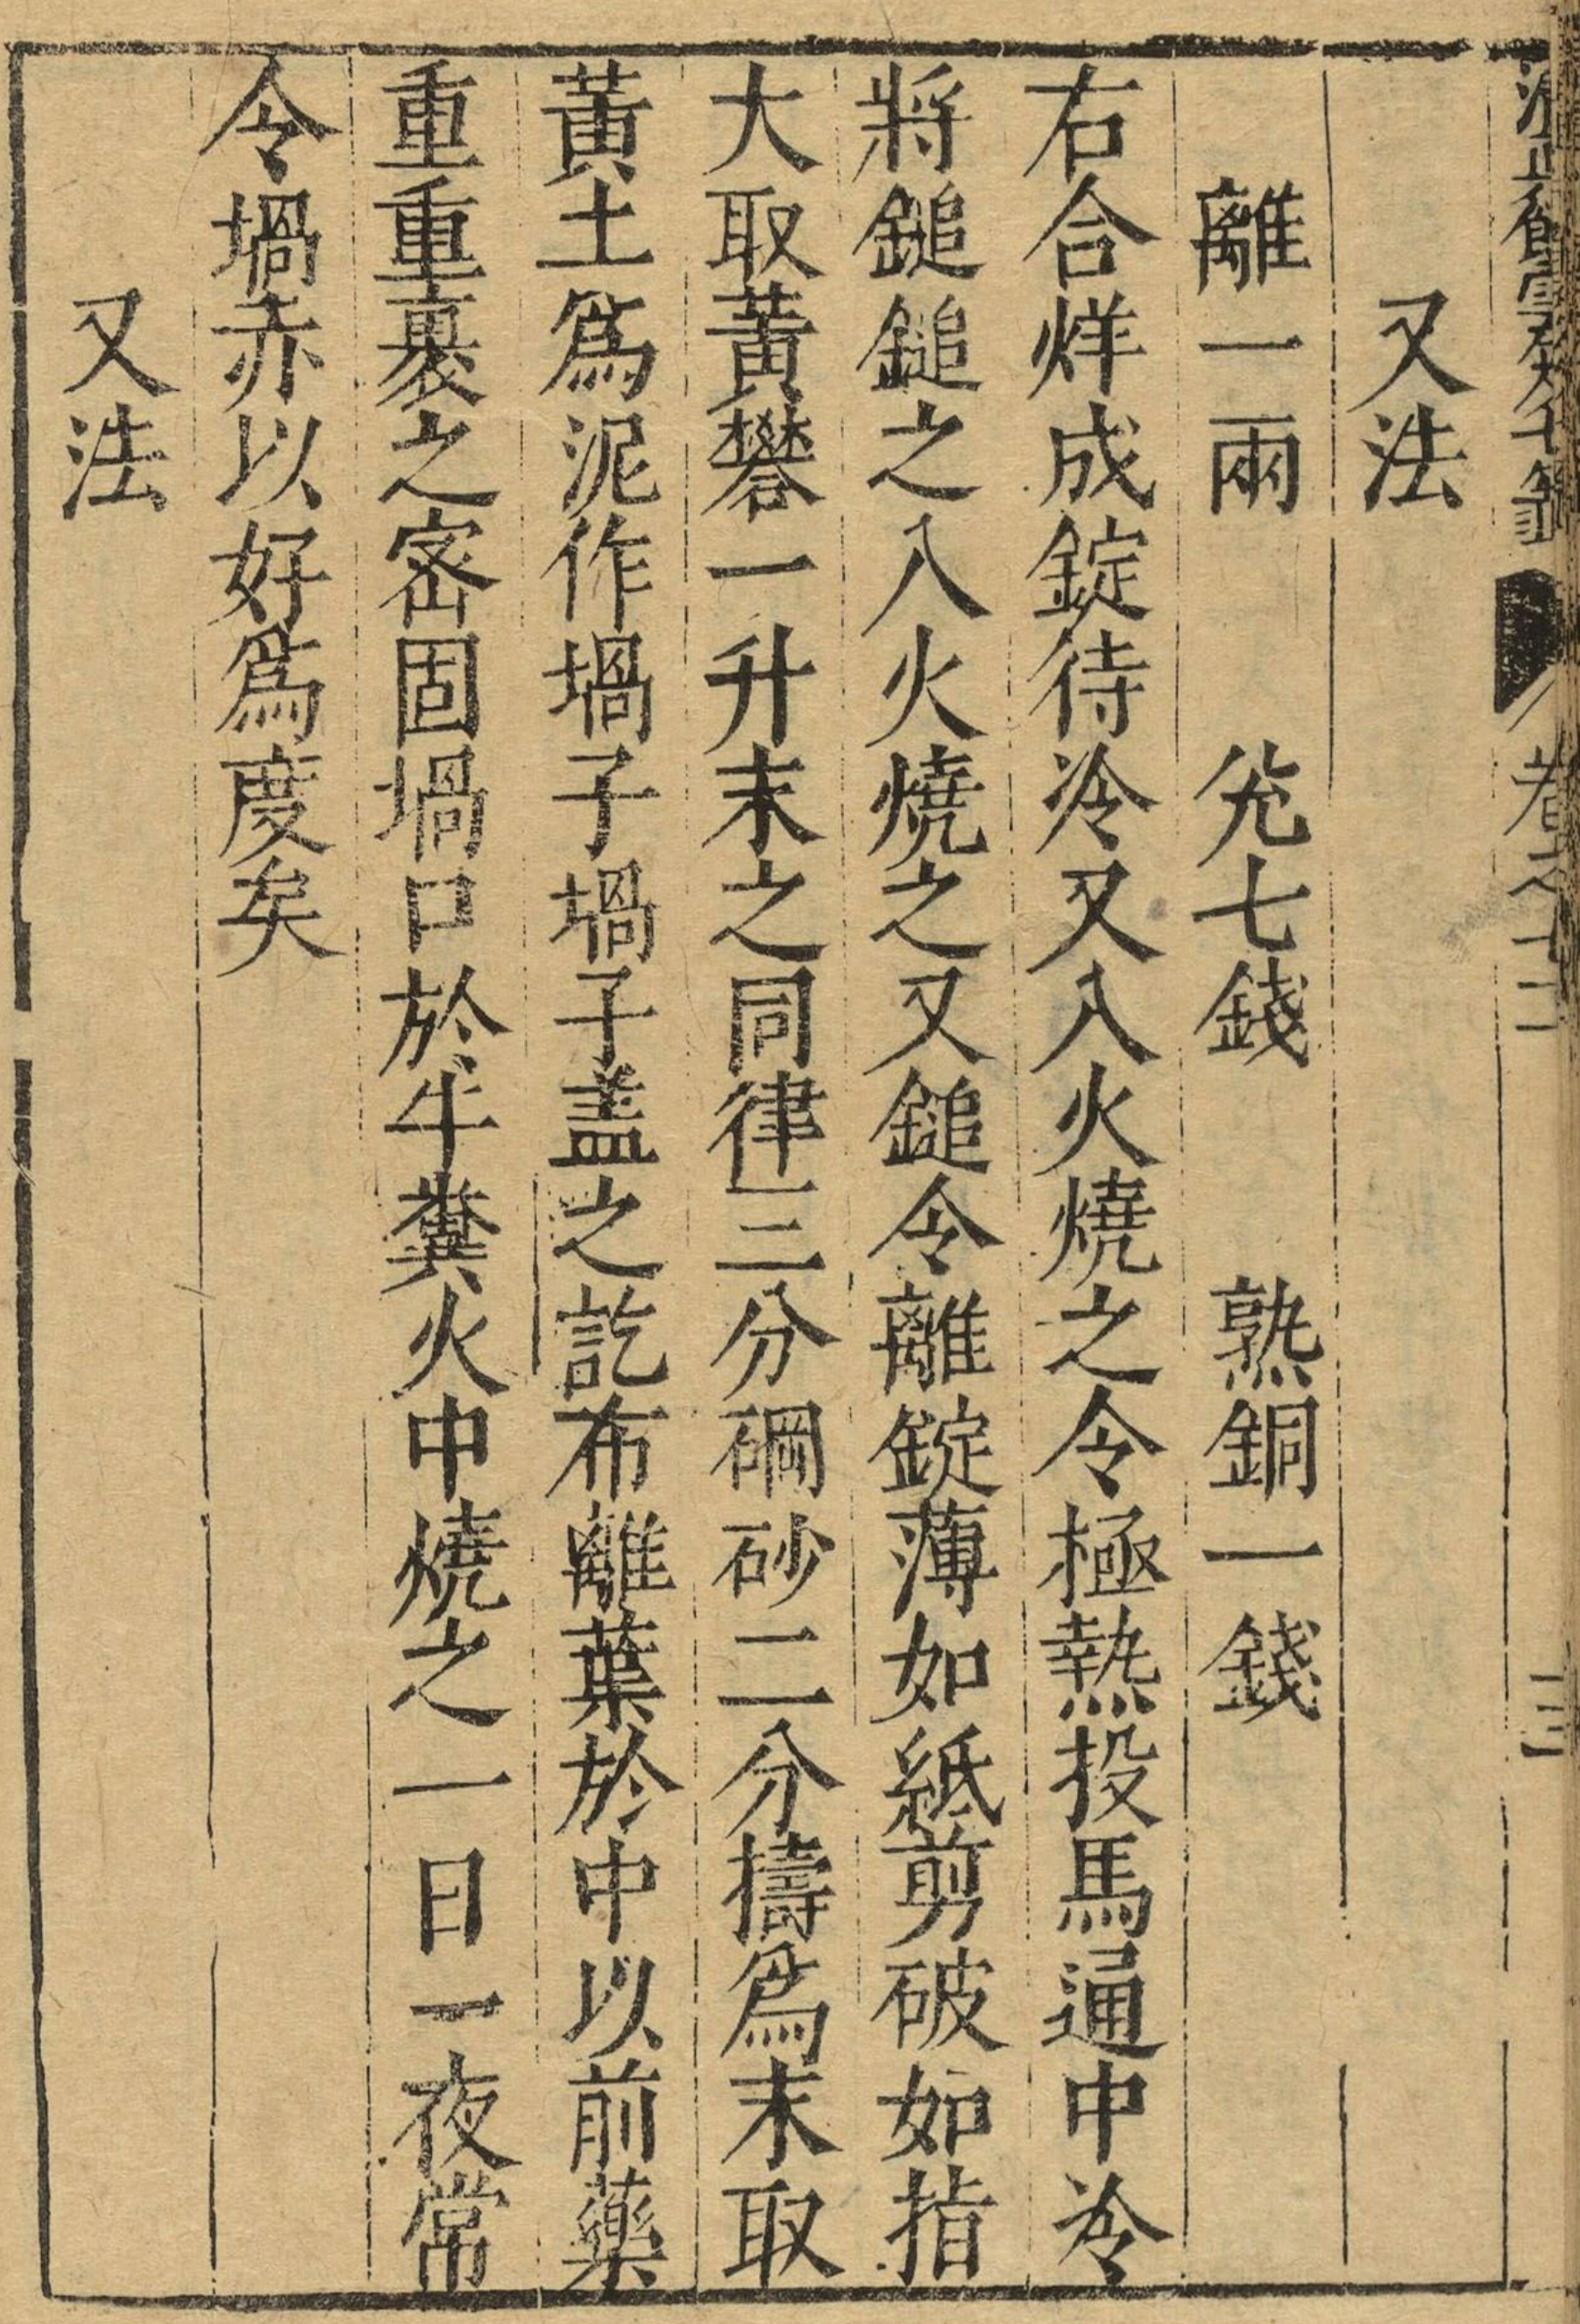 卷之十二
三
又法
離一兩　兊七錢　熟銅一錢
右合烊成錠待冷又入火燒之令極熱投馬通中冷
將鎚鎚之入火燒之又鎚令離錠薄如紙剪破如指
大取黃礬一升末之同律三分硇砂二分擣爲末取
黃土爲泥作堝子堝子盖之訖布離葉於中以前藥
重重裹之宻固堝口於牛糞火中燒之一日一夜常
令堝赤以好爲度矣
又法